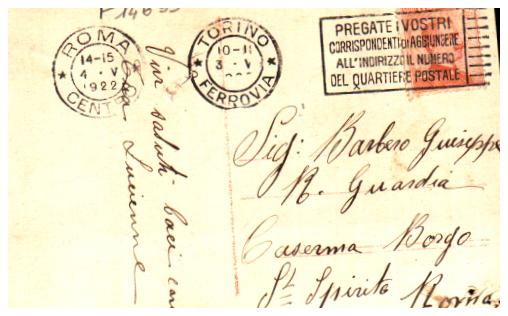 F 14655
ROMA
CENTRO
14-15
4 · V
1922
TORINO
FERROVIA
10-11
3 · V
PREGATE I VOSTRI
CORRISPONDENTI DI AGGIUNGERE
ALL'INDIRIZZO IL NUMERO
DEL QUARTIERE POSTALE
Vivi saluti baci cari
Lucienne
Sig: Barbero Giuseppe
R. Guardia
Caserma Borgo
St Spirito Roma